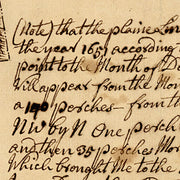 (Note) that the plaine Lin
the year 1651 according
point to the Month of
will appear from the Mou
a 140 perches - from th
NW by N One perch
and then 35 perches Mor
which brought Me to the